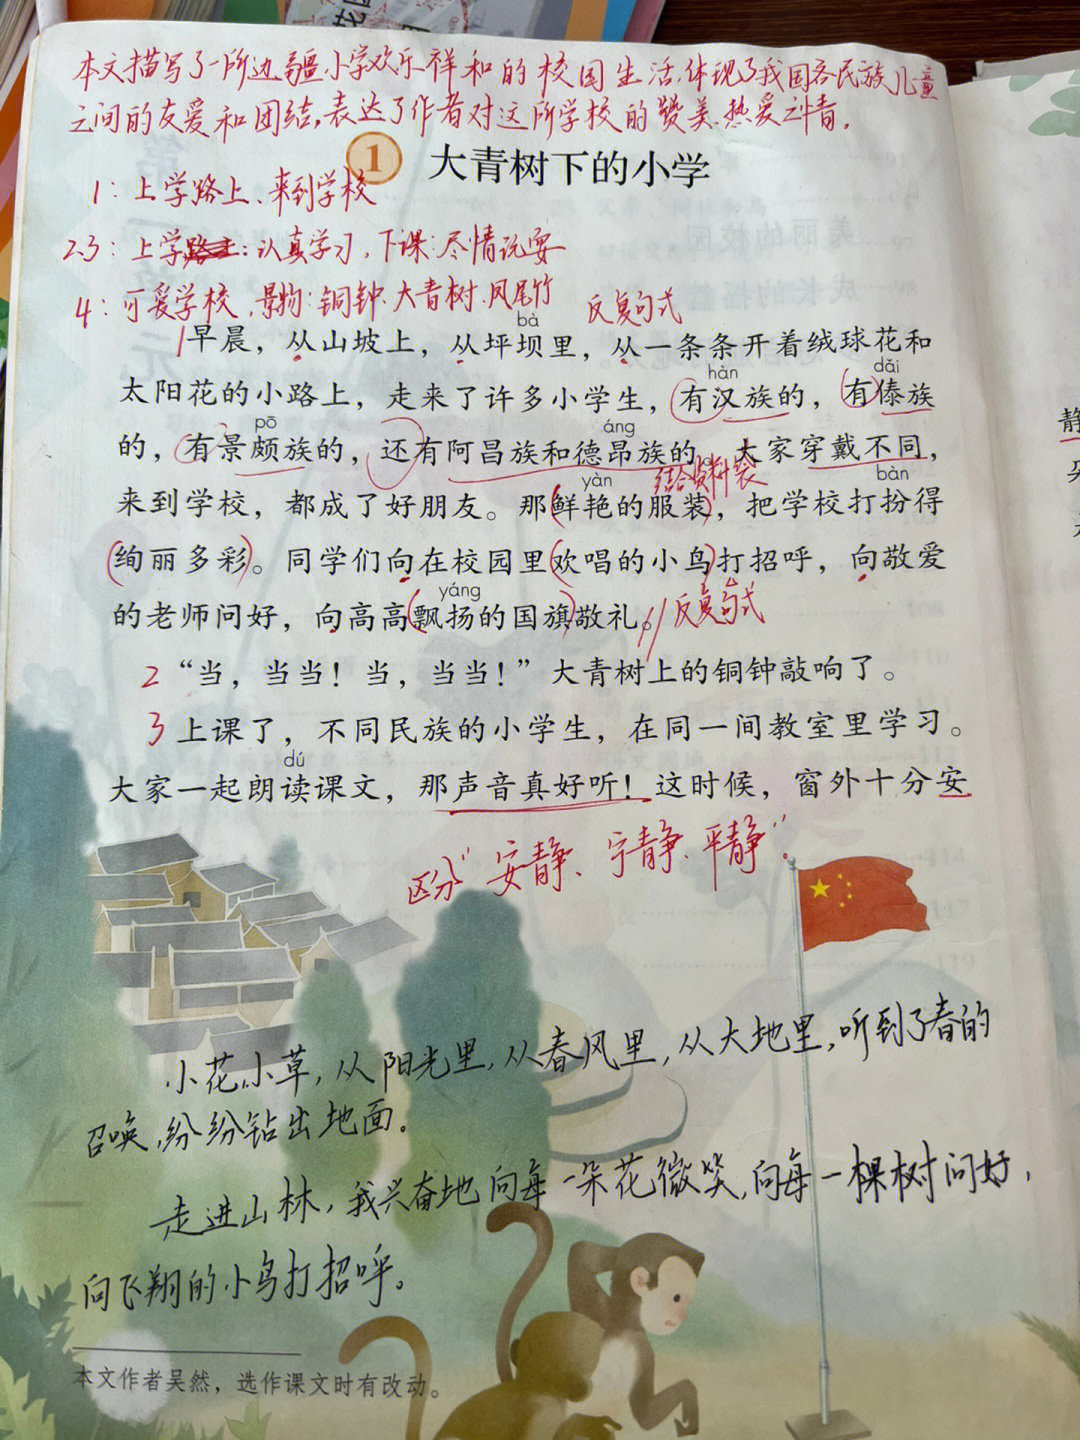 本文描写了一所边疆小学欢乐祥和的校园生活,体现了我国各民族儿童
之间的友爱和团结,表达了作者对这所学校的赞美、热爱之情。
1 大青树下的小学
1:上学路上、来到学校
2.3:上学:认真学习,下课:尽情玩耍
4:可爱学校,景物:铜钟、大青树、凤尾竹
反复句式
bà
1早晨,从山坡上,从坪坝里,从一条条开着绒球花和
hàn dǎi
太阳花的小路上,走来了许多小学生,有汉族的,有傣族
pō áng
的,有景颇族的,还有阿昌族和德昂族的。大家穿戴不同,
结合资料袋
yàn bàn
来到学校,都成了好朋友。那鲜艳的服装,把学校打扮得
绚丽多彩。同学们向在校园里欢唱的小鸟打招呼,向敬爱
yáng
的老师问好,向高高飘扬的国旗敬礼。// 反复句式
2 “当,当当!当,当当!”大青树上的铜钟敲响了。
3 上课了,不同民族的小学生,在同一间教室里学习。
dú
大家一起朗读课文,那声音真好听!这时候,窗外十分安
区分“安静、宁静、平静”。
小花小草,从阳光里,从春风里,从大地里,听到了春的
召唤,纷纷钻出地面。
走进山林,我兴奋地向每一朵花微笑,向每一棵树问好,
向飞翔的小鸟打招呼。
本文作者吴然,选作课文时有改动。
静